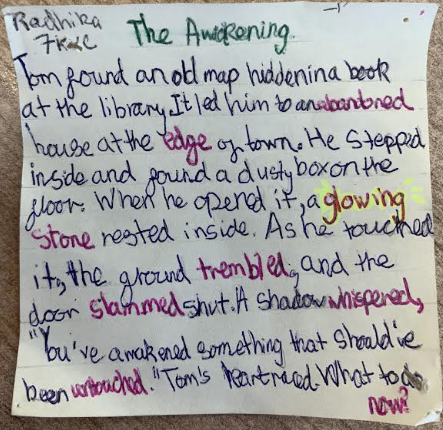 Radhika
The Awakening.
Tom found an old map hidden in a book
at the library. It led him to an abandoned
house at the edge of town. He stepped
inside and found a dusty box on the
floor. When he opened it, a glowing
stone rested inside. As he touched
it, the ground trembled, and the
door slammed shut. A shadow whispered,
"You've awakened something that should've
been untouched." Tom's heart raced. What to do
now?